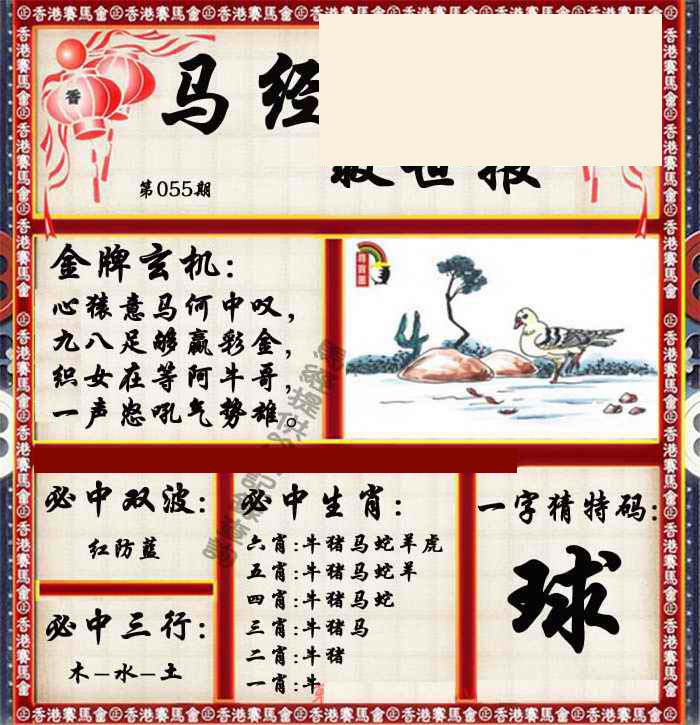 马经
救世报
第055期
金牌玄机：
心猿意马何中叹，
九八足够赢彩金，
织女在等阿牛哥，
一声怒吼气势雄。
必中双波：
红防蓝
必中三行：
木－水－土
必中生肖：
六肖：牛猪马蛇羊虎
五肖：牛猪马蛇羊
四肖：牛猪马蛇
三肖：牛猪马
二肖：牛猪
一肖：牛
一字猜特码：
球
香港賽馬會
香